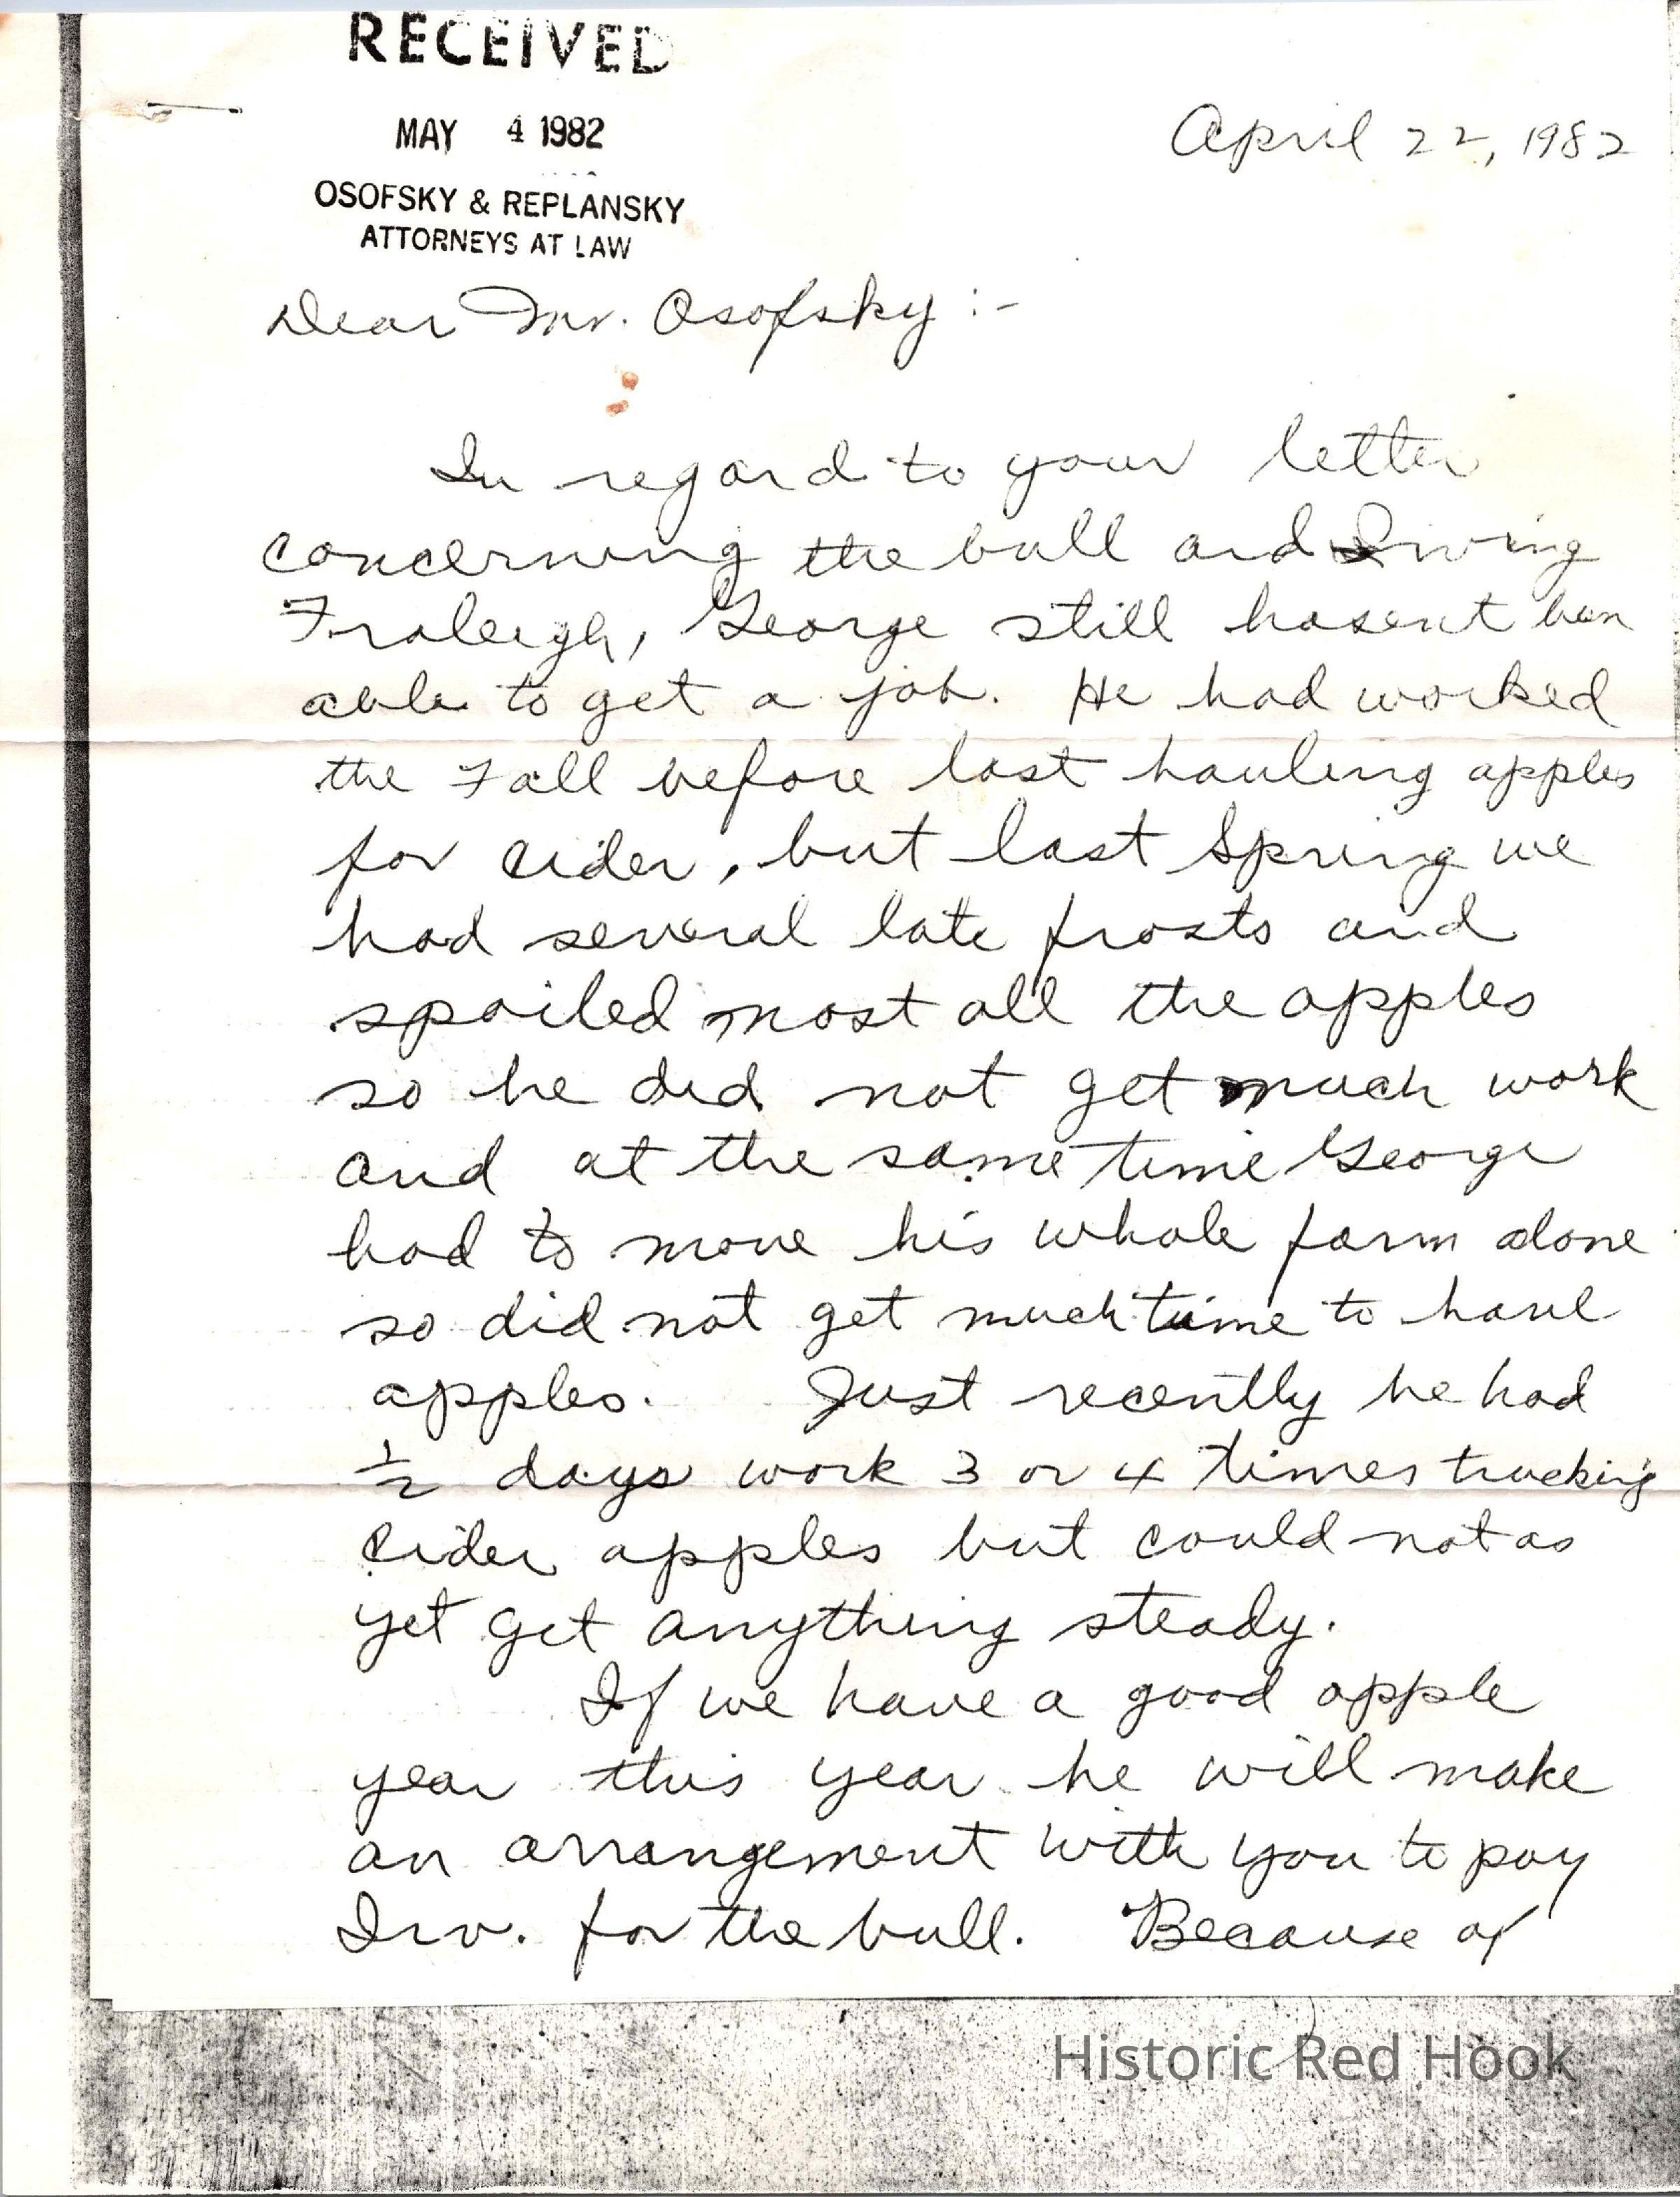 RECEIVED
MAY 4 1982
OSOFSKY & REPLANSKY
ATTORNEYS AT LAW
April 22, 1982
Dear Mr. Osofsky :-
In regard to your letter
concerning the bull and Irving
Fraleigh, George still hasent been
able to get a job. He had worked
the Fall before last hauling apples
for cider, but last Spring we
had several late frosts and
spoiled most all the apples
so he did not get much work
and at the same time George
had to move his whole farm alone
so did not get much time to haul
apples. Just recently he had
½ days work 3 or 4 times trucking
cider apples but could not as
yet get anything steady.
If we have a good apple
year this year he will make
an arrangement with you to pay
Irv. for the bull. Because of
Historic Red Hook